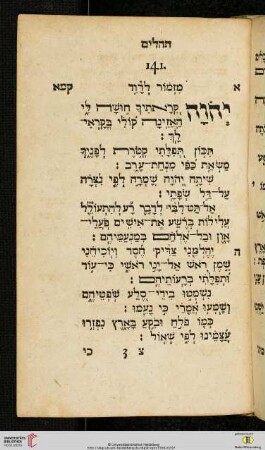 תהלים
141.
א מזמור לדוד קמא
יהוה קראתיך חושה לי
האזינה קולי בקראי
לך:
תכון תפלתי קטרת לפניך
משאת כפי מנחת ערב:
שיתה יהוה שמרה לפי נצרה
על־דל שפתי:
אל־תט־לבי לדבר רע להתעולל
עללות ברשע את־אישים פעלי־
און ובל־אלחם במנעמיהם:
ה יהלמני צדיק חסד ויוכיחני
שמן ראש אל־יני ראשי כי־עוד
ותפלתי ברעותיהם:
נשמטו בידי־סלע שפטיהם
ושמעו אמרי כי נעמו:
כמו פלח ובקע בארץ נפזרו
עצמינו לפי שאול:
צ 3 כי
© Universitätsbibliothek Heidelberg